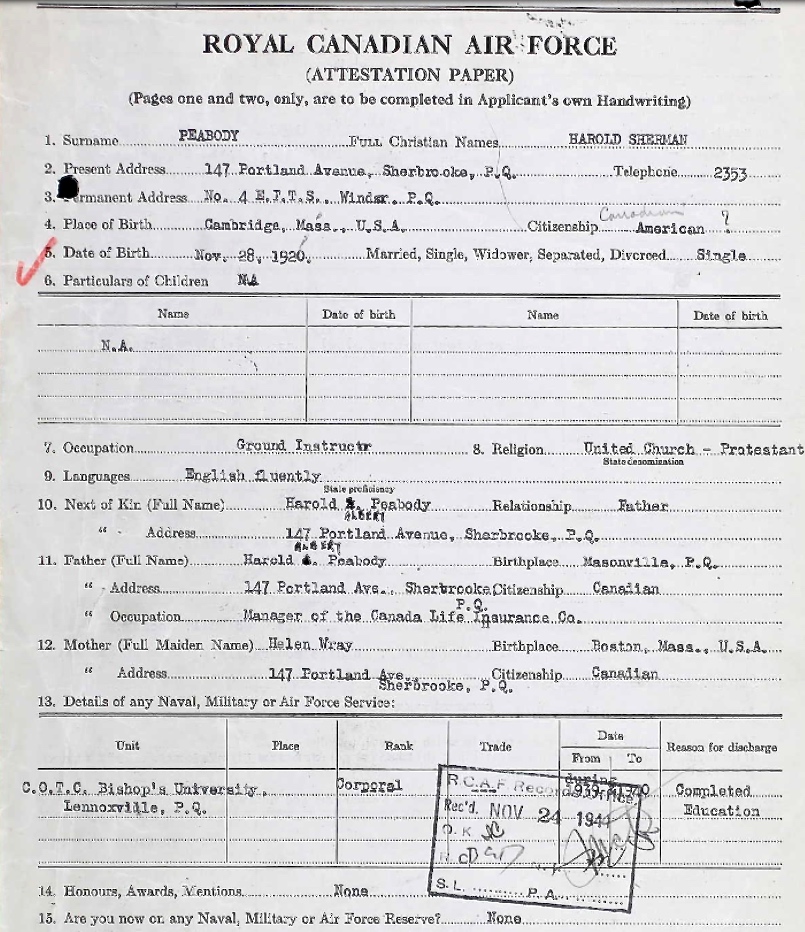 ROYAL CANADIAN AIR FORCE
(ATTESTATION PAPER)
(Pages one and two, only, are to be completed in Applicant's own Handwriting)
1. Surname PEABODY Full Christian Names HAROLD SHERMAN
2. Present Address 147 Portland Avenue, Sherbrooke, P.Q. Telephone 2353
3. Permanent Address No. 4 E.F.T.S., Windsr. P.Q.
Canadian ?
4. Place of Birth Cambridge, Mass., U.S.A. Citizenship American
5. Date of Birth Nov. 28, 1920. Married, Single, Widower, Separated, Divorced Single
6. Particulars of Children NA
Name Date of birth Name Date of birth
N.A.
7. Occupation Ground Instructr 8. Religion United Church - Protestant
State denomination
9. Languages English fluently
State proficiency
10. Next of Kin (Full Name) Harold Peabody Relationship Father
ALBERT
" Address 147 Portland Avenue, Sherbrooke, P.Q.
ALBERT
11. Father (Full Name) Harold Peabody Birthplace Masonville, P.Q.
" Address 147 Portland Ave. Sherbrooke, Citizenship Canadian
P.Q.
" Occupation Manager of the Canada Life Insurance Co.
12. Mother (Full Maiden Name) Helen Wray Birthplace Boston, Mass., U.S.A.
" Address 147 Portland Ave. Citizenship Canadian
Sherbrooke, P.Q.
13. Details of any Naval, Military or Air Force Service:
Unit Place Rank Trade Date Reason for discharge
From To
during
C.O.T.C. Bishop's University, Corporal 1939 Completed
Lennoxville, P.Q. Education
R.C.A.F Records Office
Rec'd. NOV 24 194
O.K
S.L. P.A.
14. Honours, Awards, Mentions None
15. Are you now on any Naval, Military or Air Force Reserve? None